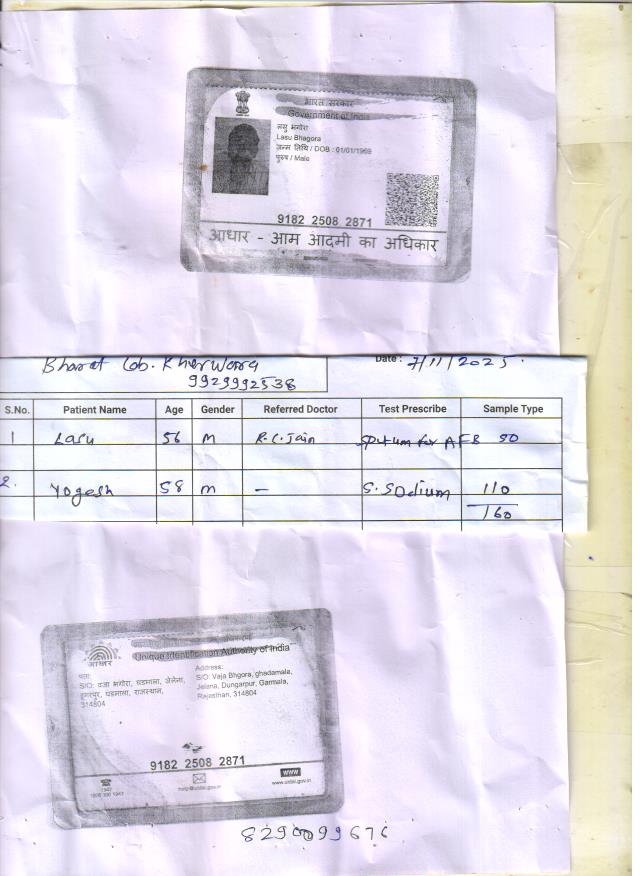 भारत सरकार
Government of India
लसु भगोरा
Lasu Bhagora
जन्म तिथि / DOB : 01/01/1969
पुरुष / Male
9182 2508 2871
आधार - आम आदमी का अधिकार
Bharat Lab. Kherwara
9929992538
Date : 7/11/2025.
S.No. Patient Name Age Gender Referred Doctor Test Prescribe Sample Type
1 Lasu 56 M R.C.Jain Sputum for AFB 50
2. Yogesh 58 M — S. Sodium 110
160
Unique Identification Authority of India
आधार
पता:
S/O: वजा भगोरा, घडमाला, जेलना,
डूंगरपुर, घडमाला, राजस्थान,
314804
Address:
S/O: Vaja Bhgora, ghadamala,
Jelana, Dungarpur, Garmala,
Rajasthan, 314804
9182 2508 2871
1947
1800 300 1947
help@uidai.gov.in
WWW
www.uidai.gov.in
8290099676